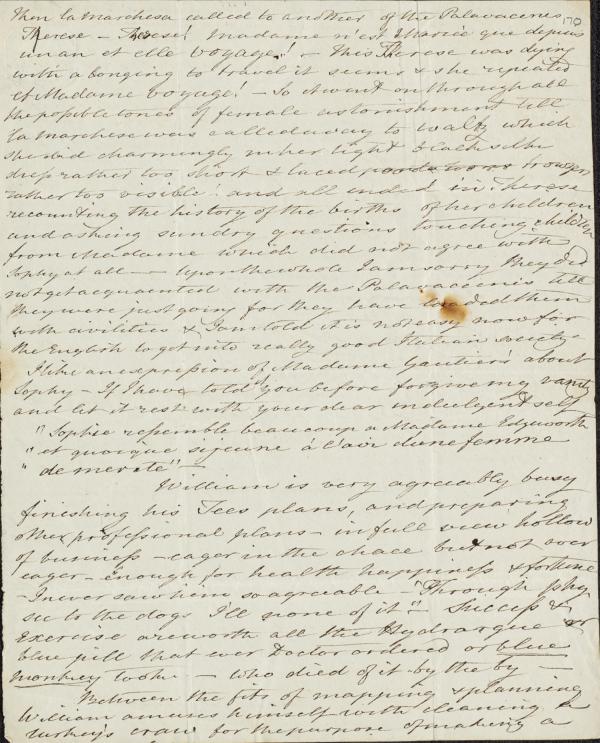 170
Then la Marchesa called to another of the Palavacenes
Therese – Therese! Madame n'est Mariée que depuis
un an et elle voyage! – This Therese was dying
with a longing to travel it seems & she repeated
et Madame voyage! – So it went on through all
the possible tones of female astonishment till
la Marchese was called away to waltz which
she did charmingly in her tight black silk
dress rather too short & laced trowsers
rather too visible! and all ended in Therese
recounting the history of the births of her children
and asking sundry questions touching children
from Madame which did not agree with
Sophy at all – Upon the whole I am sorry they did
not get acquainted with the Palavacenis till
they were just going for they have loaded them
with civilities & I am told it is not easy now for
the English to get into really good Italian society –
I like an expression of Madame Gautier's about
Sophy – If I have told you before forgive my vanity
and let it rest with your dear indulgent self
"Sophie ressemble beaucoup a Madame Edgeworth
"et quoique si jeune à l'air d'une femme
"de merite" –
William is very agreeably busy
finishing his Tees plans, and preparing
other professional plans – in full view hollow
of business – eager in the chace but not over
eager – enough for health happiness & fortune
– I never saw him so agreeable – "Through phy
sic to the dogs I'll none of it" – Success &
Exercise are worth all the Hydrargue or
blue pill that ever Doctor ordered or blue
monkey took – who died of it by the by –
Between the fits of mapping & planning
William amuses himself with cleaning a
turkey's craw for the purpose of making a